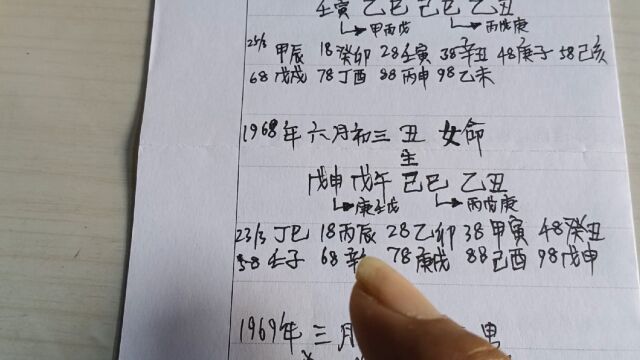 壬寅 乙巳 己巳 乙丑
甲丙戊 丙戊庚
25/3 甲辰 18癸卯 28壬寅 38辛丑 48庚子 58己亥
68戊戌 78丁酉 88丙申 98乙未
1968年 六月初三 丑 女命
生
戊申 戊午 己巳 乙丑
庚壬戊 丙戊庚
23/3 丁巳 18丙辰 28乙卯 38甲寅 48癸丑
58壬子 68辛 78庚戌 88己酉 98戊申
1969年 三月 男